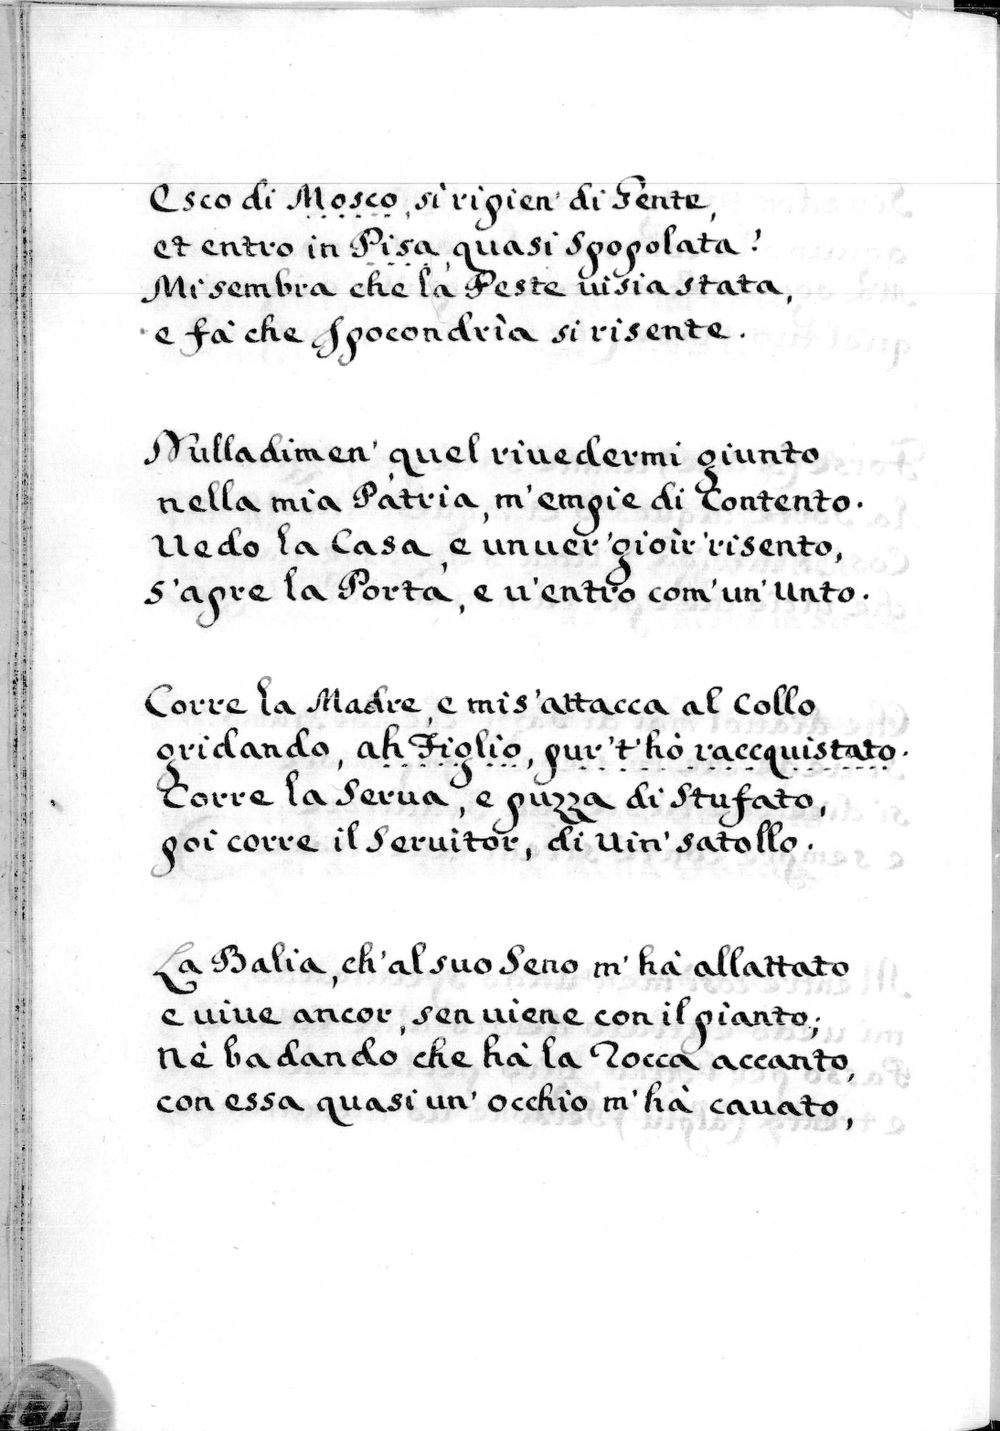 Esco di Mosco, sì ripien' di Gente,
et entro in Pisa, quasi spopolata?
Mi sembra che la Peste vi sia stata,
e fà che Ipocondrìa si risente.

Nulladimen', quel rivedermi giunto
nella mia Patria, m'empie di Contento.
Vedo la Casa, e un ver' gioìr' risento,
s'apre la Porta, e v'entro com' un' Unto.

Corre la Madre, e mi s'attacca al Collo
gridando, ah Figlio, pur' t'hò raccquistato.
Corre la Serva, e puzza di Stufato,
poi corre il Servitor, di Vin' satollo.

La Balia, ch'al suo Seno m'hà allattato
e vive ancor, sen viene con il pianto;
nè badando che hà la Rocca accanto,
con essa quasi un' occhio m'hà cavato,